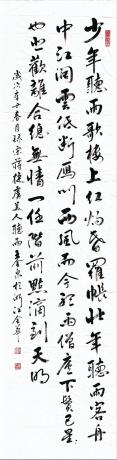 少年聽雨歌樓上紅燭昏羅帳壯年聽雨客舟
中江闊雲低斷雁叫西風而今聽雨僧廬下鬢已星
也悲歡離合總無情一任階前點滴到天明
歲次春月宋蔣捷虞美人聽雨於浙江金華